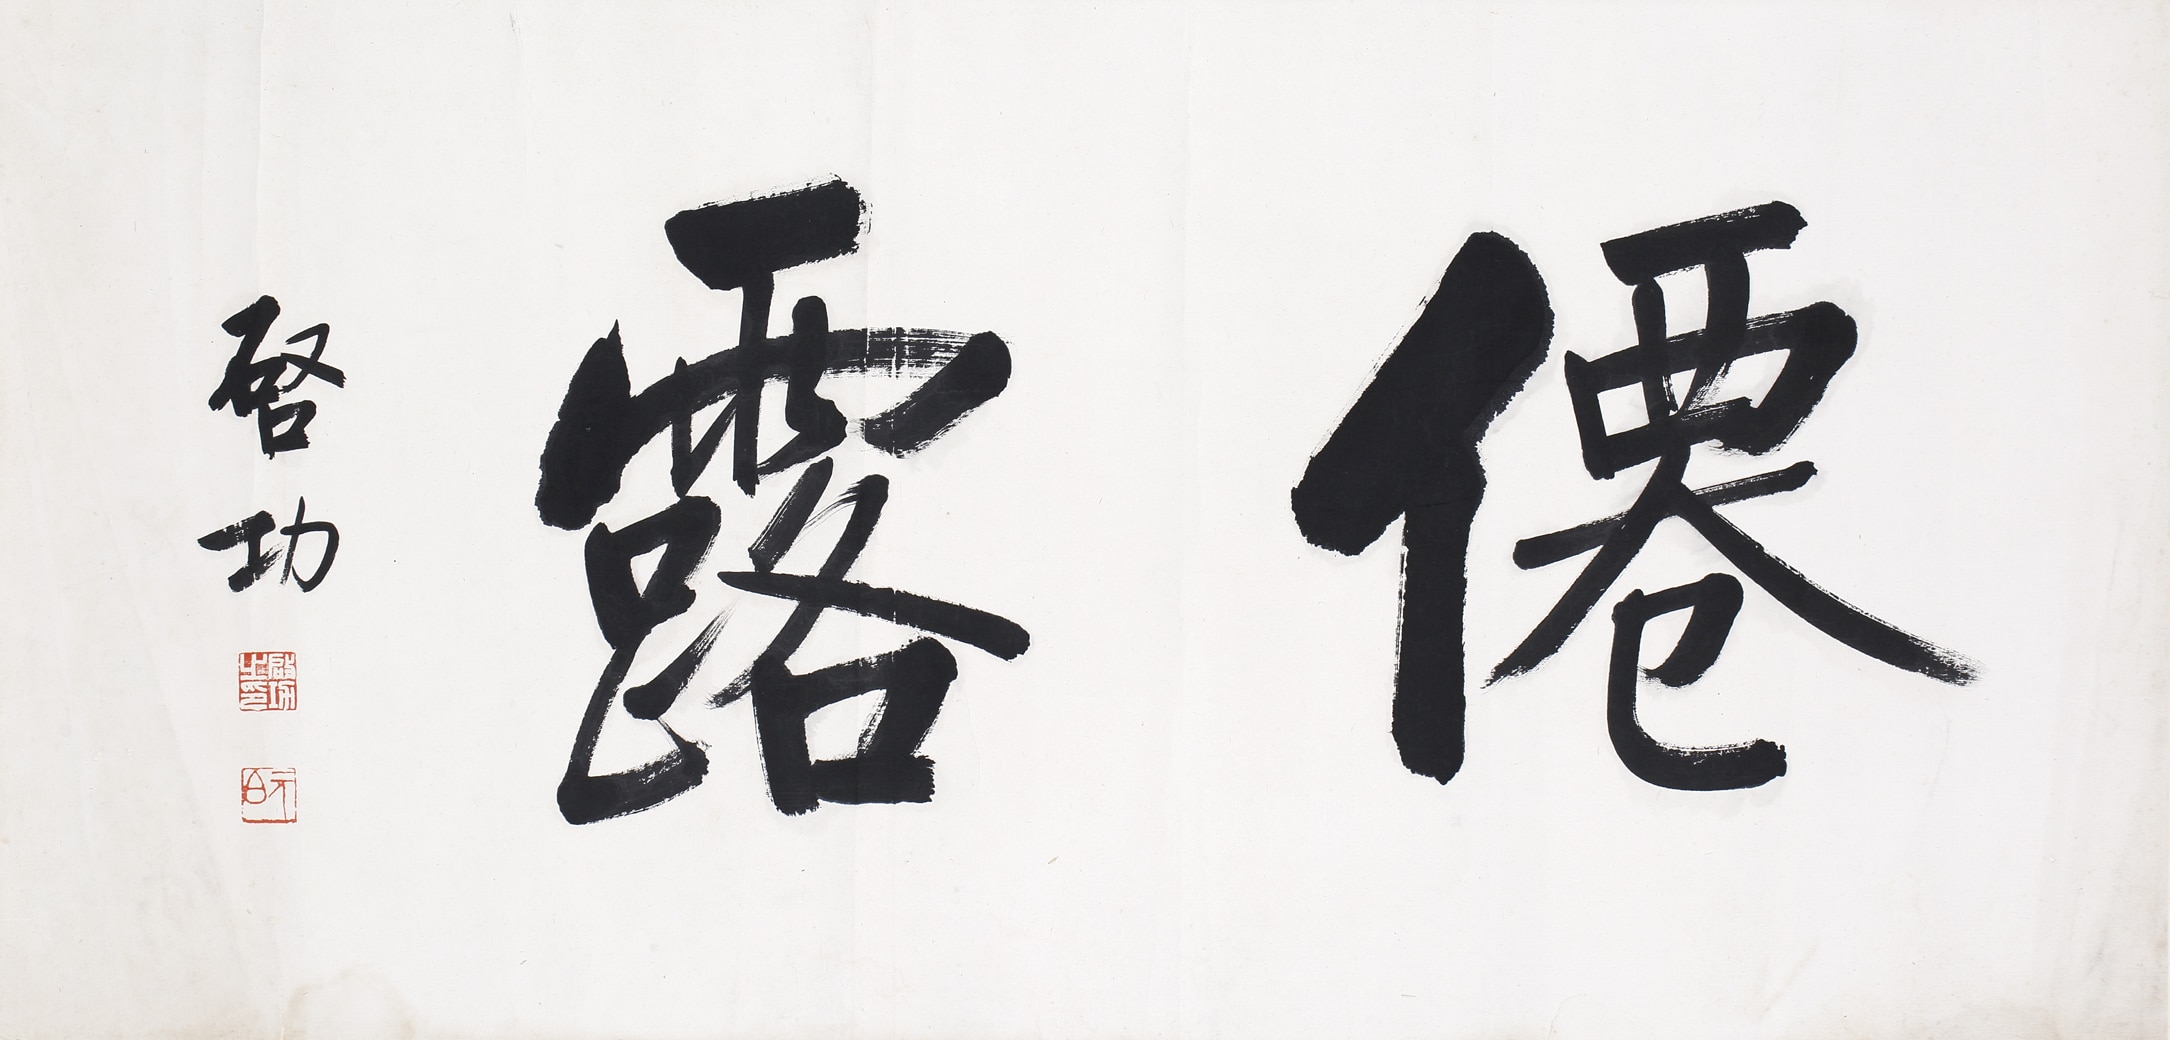 僊露
啓功
啟功之印
元白